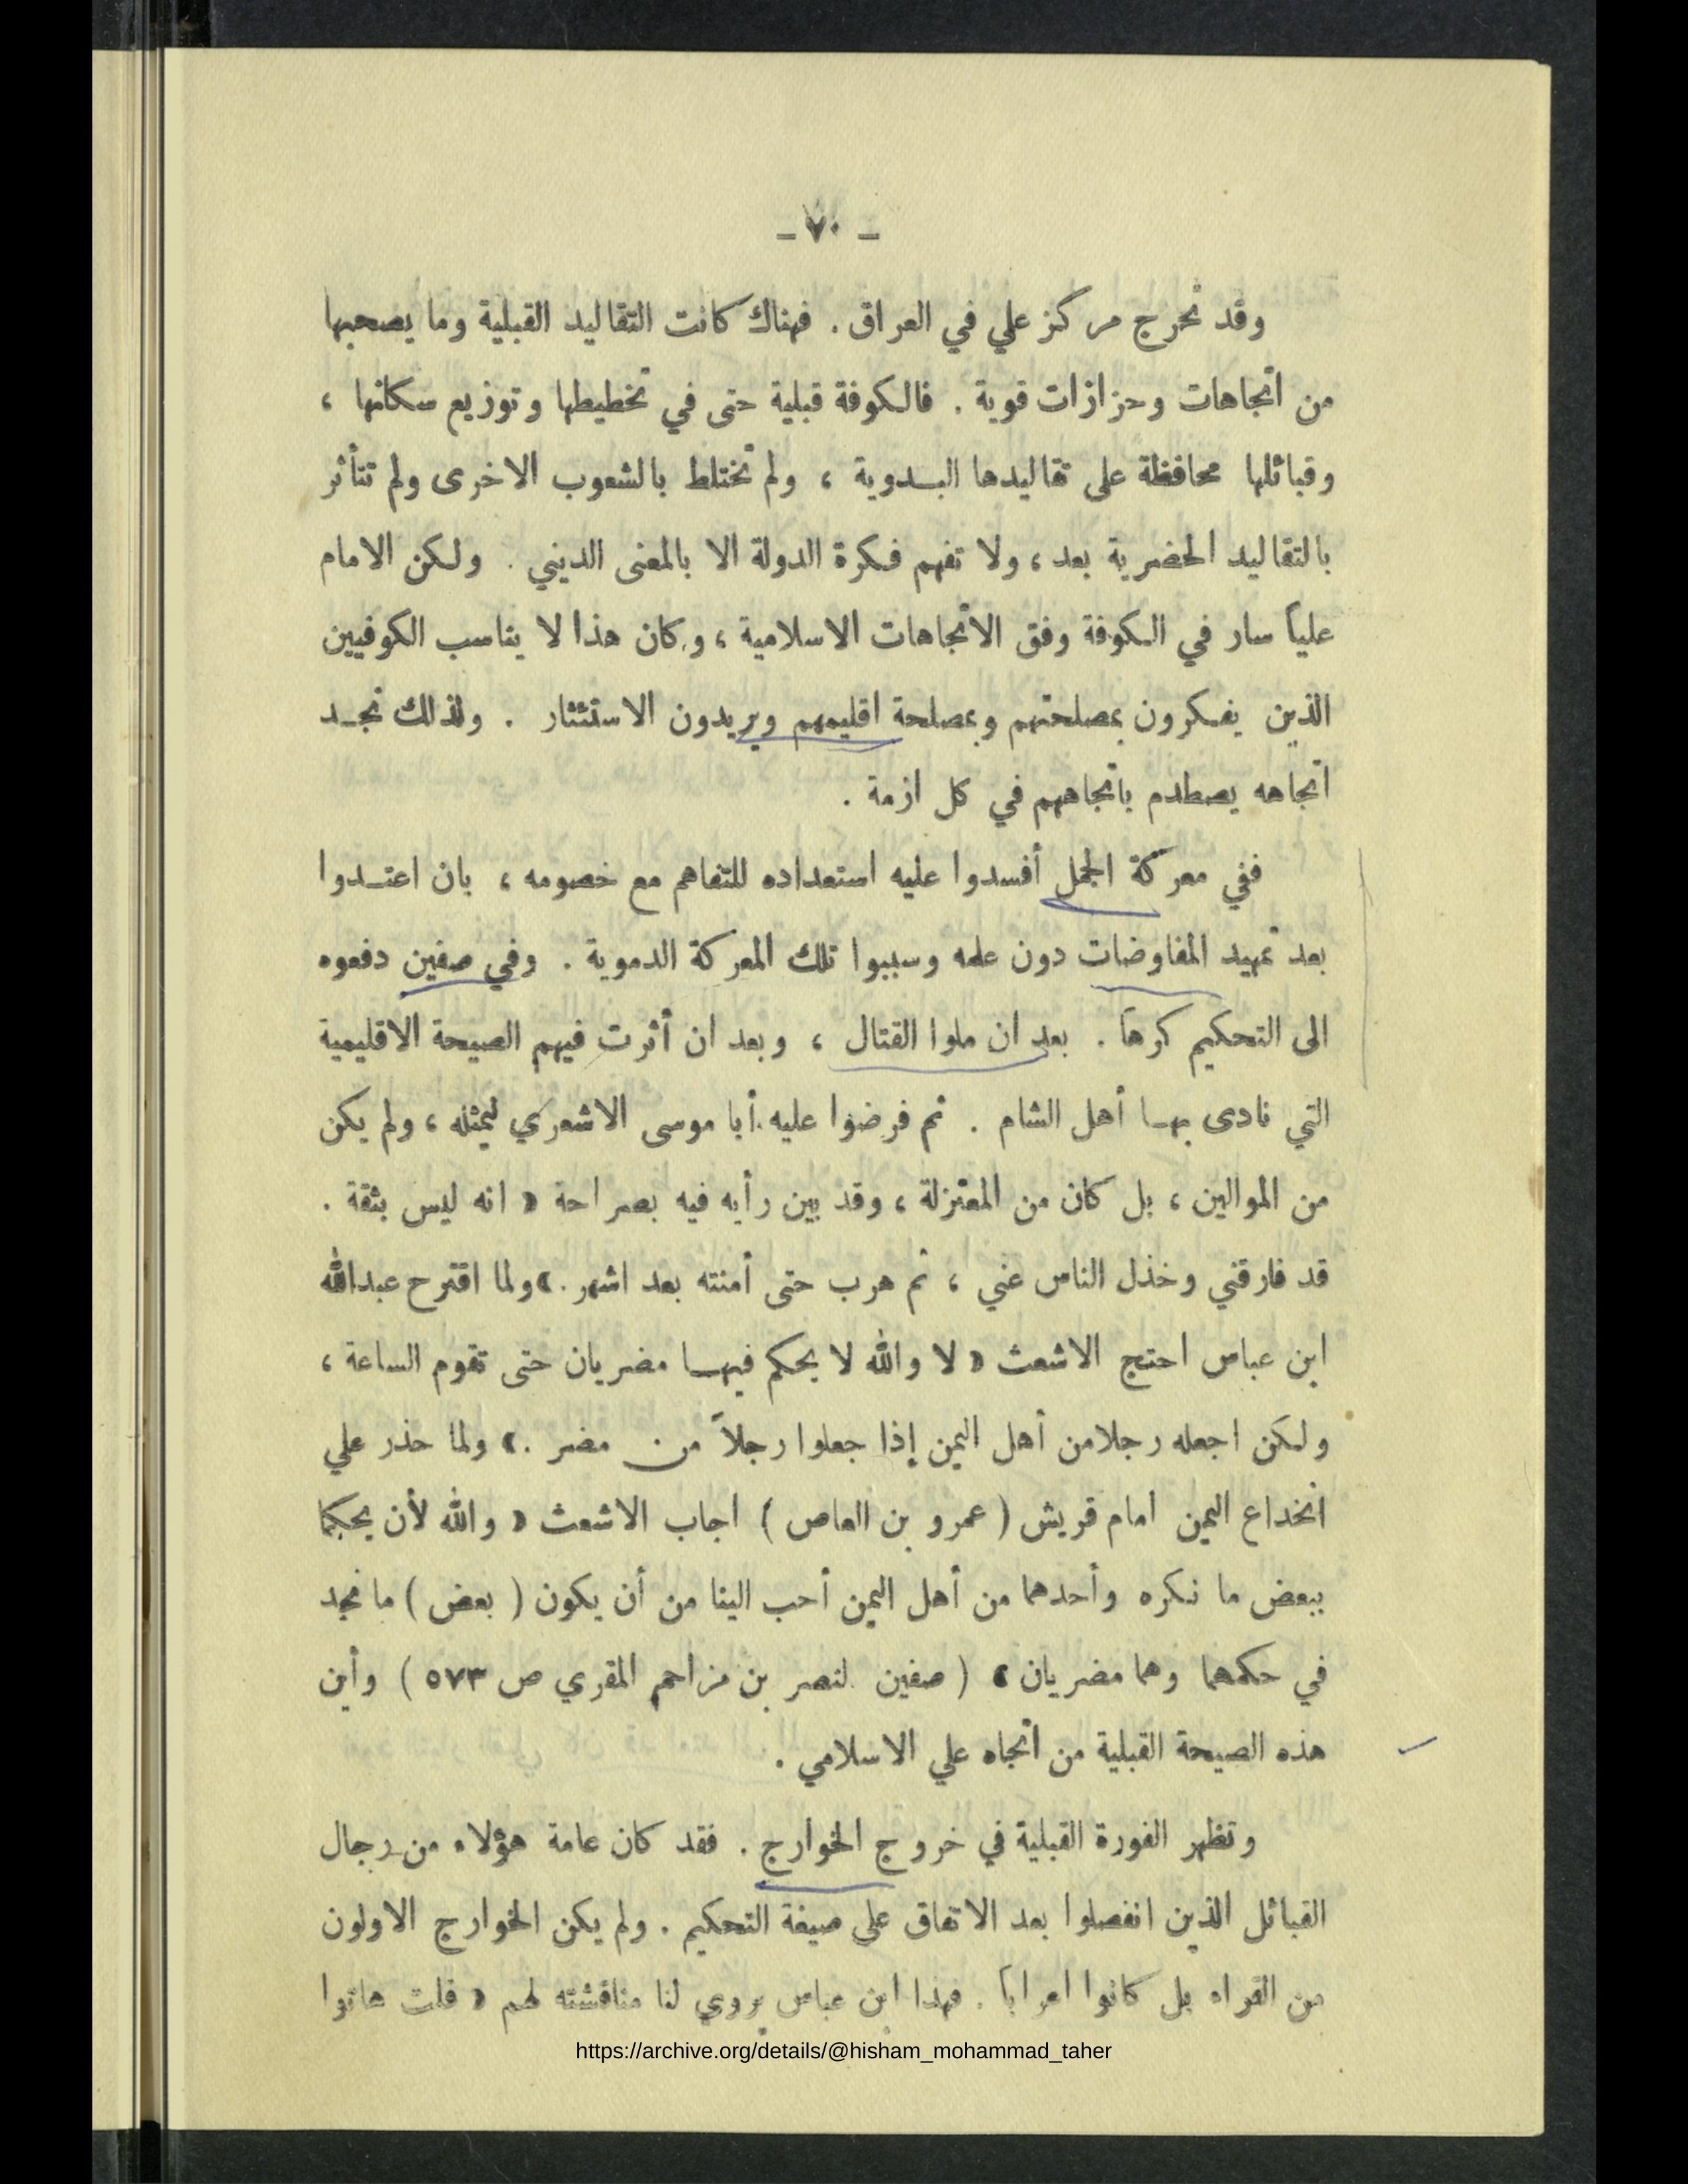 ـ ٧٠ ـ
وقد تحرج مركز علي في العراق . فهناك كانت التقاليد القبلية وما يصحبها
من اتجاهات وحزازات قوية . فالكوفة قبلية حتى في تخطيطها وتوزيع سكانها ،
وقبائلها محافظة على تقاليدها البـدوية ، ولم تختلط بالشعوب الاخرى ولم تتأثر
بالتقاليد الحضرية بعد ، ولا تفهم فكرة الدولة الا بالمعنى الديني . ولكن الامام
علياً سار في الكوفة وفق الاتجاهات الاسلامية ، وكان هذا لا يناسب الكوفيين
الذين يفكرون بمصلحتهم وبمصلحة اقليمهم ويريدون الاستئثار . ولذلك نجـد
اتجاهه يصطدم باتجاههم في كل ازمة .
ففي معركة الجمل أفسدوا عليه استعداده للتفاهم مع خصومه ، بان اعتـدوا
بعد تمهيد المفاوضات دون علمه وسببوا تلك المعركة الدموية . وفي صفين دفعوه
الى التحكيم كرهاً . بعد ان ملوا القتال ، وبعد ان أثرت فيهم الصيحة الاقليمية
التي نادى بهـا أهل الشام . ثم فرضوا عليه أبا موسى الاشعري ليمثله ، ولم يكن
من الموالين ، بل كان من المعتزلة ، وقد بين رأيه فيه بصراحة « انه ليس بثقة .
قد فارقني وخذل الناس عني ، ثم هرب حتى أمنته بعد اشهر .» ولما اقترح عبدالله
ابن عباس احتج الاشعث « لا والله لا يحكم فيهـا مضريان حتى تقوم الساعة ،
ولكن اجعله رجلامن أهل اليمن إذا جعلوا رجلاً من مضر .» ولما حذر علي
انخداع اليمن امام قريش ( عمرو بن العاص ) اجاب الاشعث « والله لأن يحكما
ببعض ما نكره وأحدهما من أهل اليمن أحب الينا من أن يكون ( بعض ) ما نجد
في حكمهما وهما مضريان » ( صفين لنصر بن مزاحم المقري ص ٥٧٣ ) وأين
هذه الصيحة القبلية من اتجاه علي الاسلامي .
وتظهر الفورة القبلية في خروج الخوارج . فقد كان عامة هؤلاء من رجال
القبائل الذين انفصلوا بعد الاتفاق على صيغة التحكيم . ولم يكن الخوارج الاولون
من القراء بل كانوا اعراباً . فهذا ابن عباس يروي لنا مناقشته لهم « قلت هاتوا
https://archive.org/details/@hisham_mohammad_taher